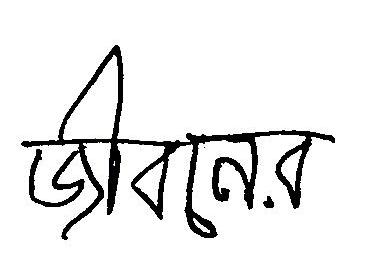 জীবনের